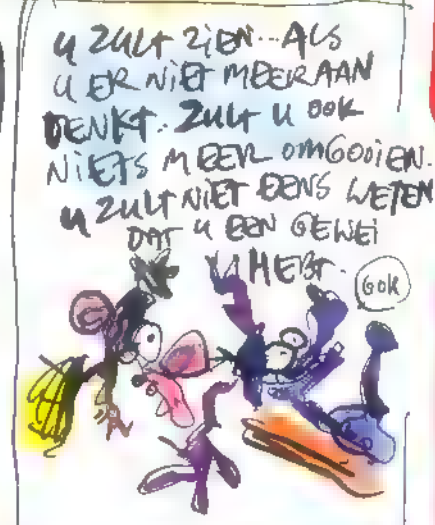 U ZULT ZIEN... ALS
U ER NIET MEER AAN
DENKT. ZULT U OOK
NIETS MEER OMGOOIEN.
U ZULT NIET EENS WETEN
DAT U EEN GEWEI
HEBT.
GOK